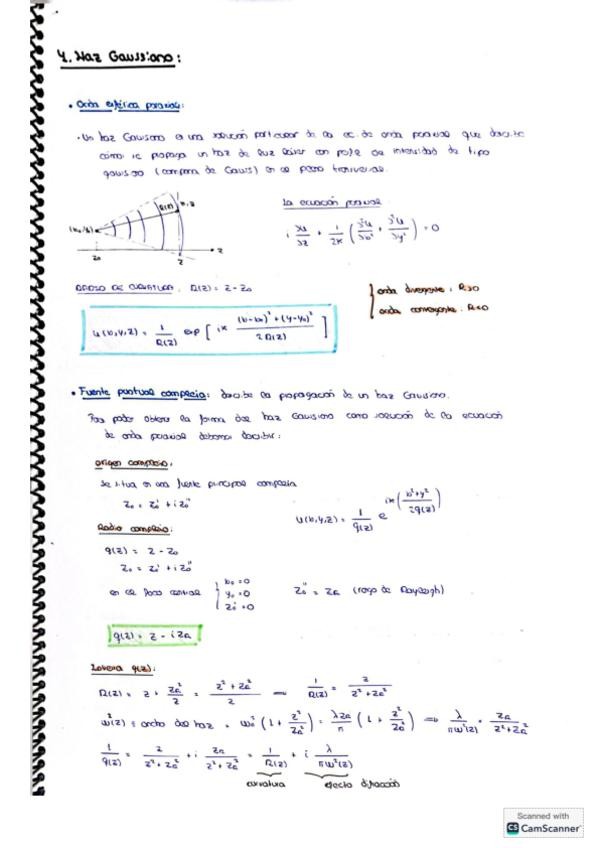 4. Haz Gaussiano:
• Onda esférica paraxial:
• Un haz Gaussiano es una solución particular de la ec. de onda paraxial que describe
cómo se propaga un haz de luz láser con perfil de intensidad de tipo
gaussiano (campana de Gauss) en el plano transversal.
R(z)
z₀ z z
La ecuación paraxial
i ∂u/∂z + 1/2k (∂²u/∂x² + ∂²u/∂y²) = 0
RADIO DE CURVATURA: R(z) = z - z₀
{ onda divergente: R>0
onda convergente: R<0
u(x,y,z) = 1/R(z) exp [ ik (x-x₀)² + (y-y₀)² / 2R(z) ]
• Fuente puntual compleja: describe la propagación de un haz Gaussiano.
Para poder obtener la forma del haz Gaussiano como solución de la ecuación
de onda paraxial debemos describir:
origen complejo:
se situa en una fuente principal compleja
z₀ = z₀' + i z₀''
u(x,y,z) = 1/q(z) e^{ik (x²+y² / 2q(z))}
Radio complejo:
q(z) = z - z₀
z₀ = z₀' + i z₀''
en el foco central { x₀ = 0
y₀ = 0
z₀' = 0
z₀'' = z_R (rango de Rayleigh)
q(z) = z - i z_R
q(z):
R(z) = z + z_R²/z = z² + z_R² / z ⟹ 1/R(z) = z / z² + z_R²
ω²(z) = ancho del haz = ω₀² (1 + z²/z_R²) = λz_R/π (1 + z²/z_R²) ⟹ λ/πω²(z) = z_R / z² + z_R²
1/q(z) = z / z² + z_R² + i z_R / z² + z_R² = 1/R(z) + i λ/πω²(z)
curvatura efecto difracción
Scanned with
CS CamScanner